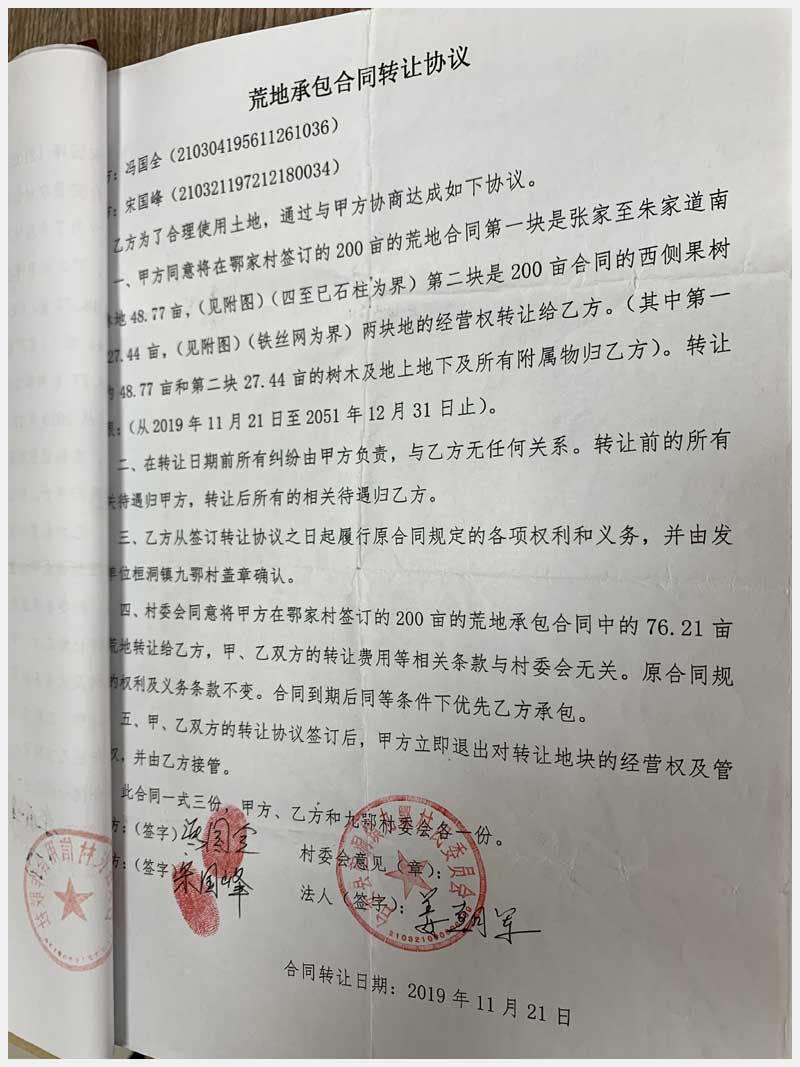 荒地承包合同转让协议
：冯国全（210304195611261036）
：宋国峰（210321197212180034）
乙方为了合理使用土地，通过与甲方协商达成如下协议。
一、甲方同意将在鄂家村签订的200亩的荒地合同第一块是张家至朱家道南
地48.77亩，（见附图）（四至已石柱为界）第二块是200亩合同的西侧果树
27.44亩，（见附图）（铁丝网为界）两块地的经营权转让给乙方。（其中第一
48.77亩和第二块27.44亩的树木及地上地下及所有附属物归乙方）。转让
：（从2019年11月21日至2051年12月31日止）。
二、在转让日期前所有纠纷由甲方负责，与乙方无任何关系。转让前的所有
关待遇归甲方，转让后所有的相关待遇归乙方。
三、乙方从签订转让协议之日起履行原合同规定的各项权利和义务，并由发
单位桓洞镇九鄂村盖章确认。
四、村委会同意将甲方在鄂家村签订的200亩的荒地承包合同中的76.21亩
荒地转让给乙方，甲、乙双方的转让费用等相关条款与村委会无关。原合同规
的权利及义务条款不变。合同到期后同等条件下优先乙方承包。
五、甲、乙双方的转让协议签订后，甲方立即退出对转让地块的经营权及管
权，并由乙方接管。
此合同一式三份，甲方、乙方和九鄂村委会各一份。
方：（签字）冯国全
村委会意见（章）：
方：（签字 宋国峰
法人（签字）：姜
村民委员会
合同转让日期：2019年11月21日